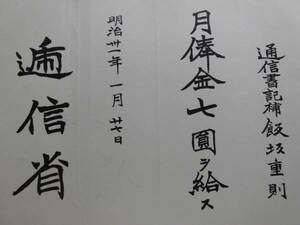 通信書記補 飯坂重則
月俸金七圓ヲ給ス
明治卅一年一月廿七日
遞信省